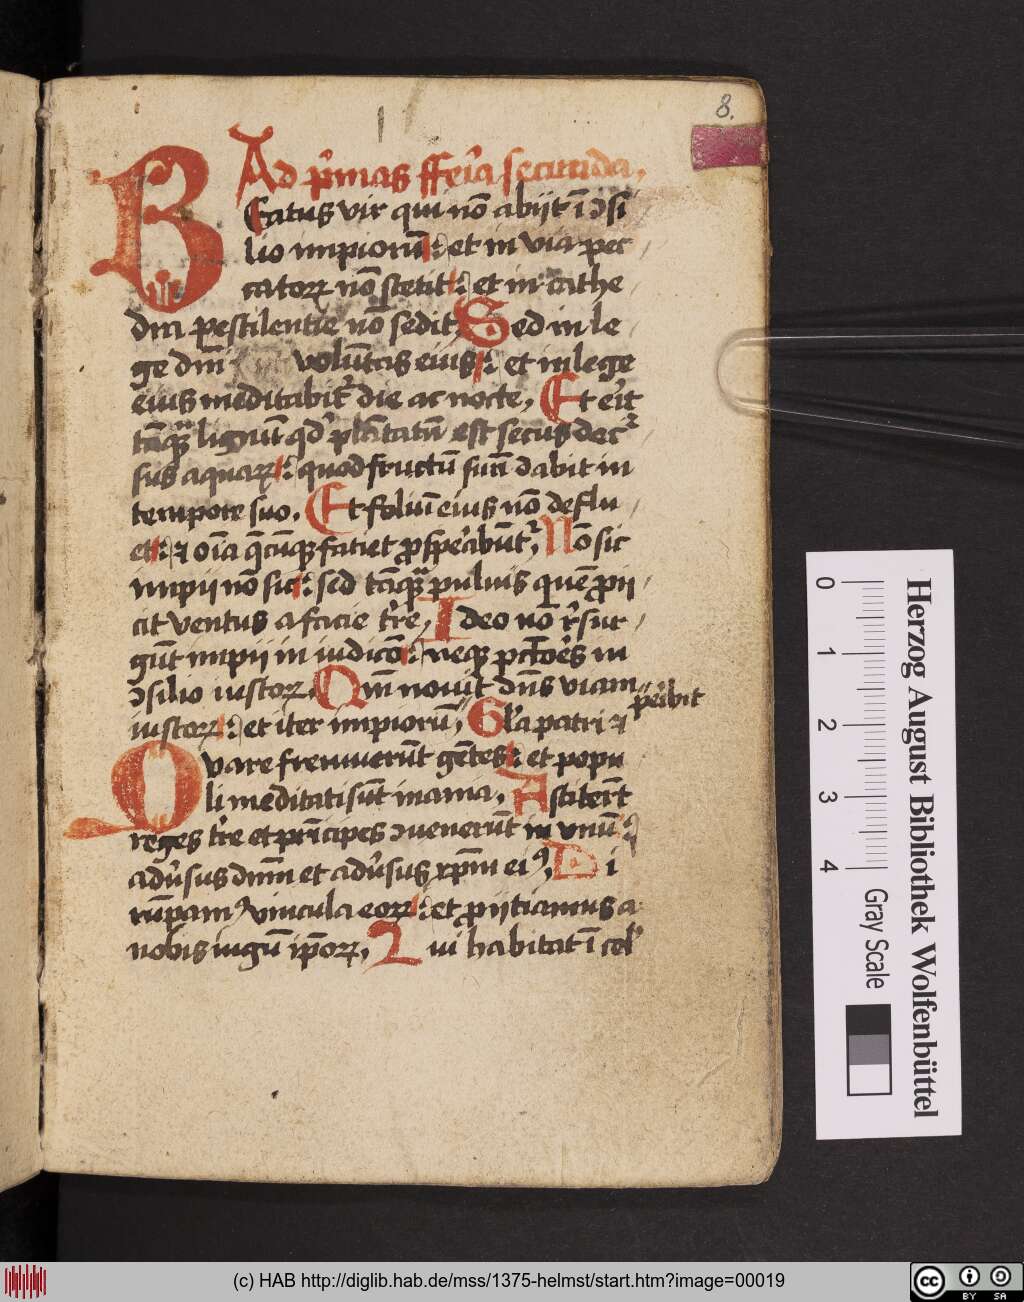 8.
Ad p'mas ffei'a secunda,
Beatus vir qui nō abijt ī ɔsi
lio impiorū : et in via pec
catoꝝ nō stetit : et in cathe
dra pestilentie nō sedit. Sed in le
ge dm̄i volūtas eius : et in lege
eius meditabit' die ac nocte, Et e'it
tāqȝ lignūt qd' plātatū est secus dec'
sus aquaꝝ : quod fructū suū dabit in
tempore suo. Et foliū eius nō deflu
et : ⁊ oīa q̄cūqȝ faciet ꝓspe'abūt', Nō sic
impij nō sic : sed tāqȝ puluis quē ꝓij
cit ventus a facie t're, Ideo nō r'sur
gūt impij in iudicō : neqȝ pctōes in
ɔsilio iustoꝝ, Qm̄ nouit dn̄s viam
iustoꝝ : et iter impiorū pe'ibit Gl'a patri ⁊
Quare fremuerūt gētes : et popu
li meditati sūt inania, Astiter̄t
reges t're et prīcipes ɔuenerūt in vnū :
adu'sus dnm̄ et adu'sus xpm̄ eiꝰ, Di
rūpamꝰ vincula eoꝝ : et ꝓijtiamus a
nobis iugū ip̄oꝝ, Qui habitat ī cel'
0 1 2 3 4
Herzog August Bibliothek Wolfenbüttel
Gray Scale
(c) HAB http://diglib.hab.de/mss/1375-helmst/start.htm?image=00019
cc BY SA